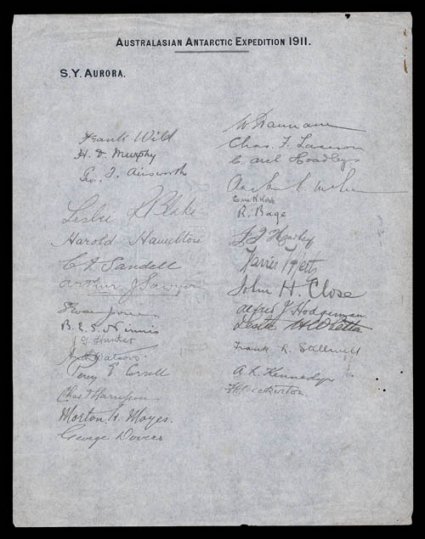 AUSTRALASIAN ANTARCTIC EXPEDITION 1911.
S.Y. AURORA.
Frank Wild
H. D. Murphy
Geo. D. Ainsworth
Leslie R Blake
Harold Hamilton
C A Sandell
Arthur J Sawyer
Jones
B. E. S. Ninnis
J G Hunter
Watson
Percy E Correll
Chas T Harrisson
Morton H. Moyes.
George Dovers
W Hannam
Chas. F. Laseron
C. Archd Hoadley
R. Bage
J F Hurley
John H. Close
Alfred J Hodgeman
Leslie H Whetter
Frank L Stillwell
A L Kennedy